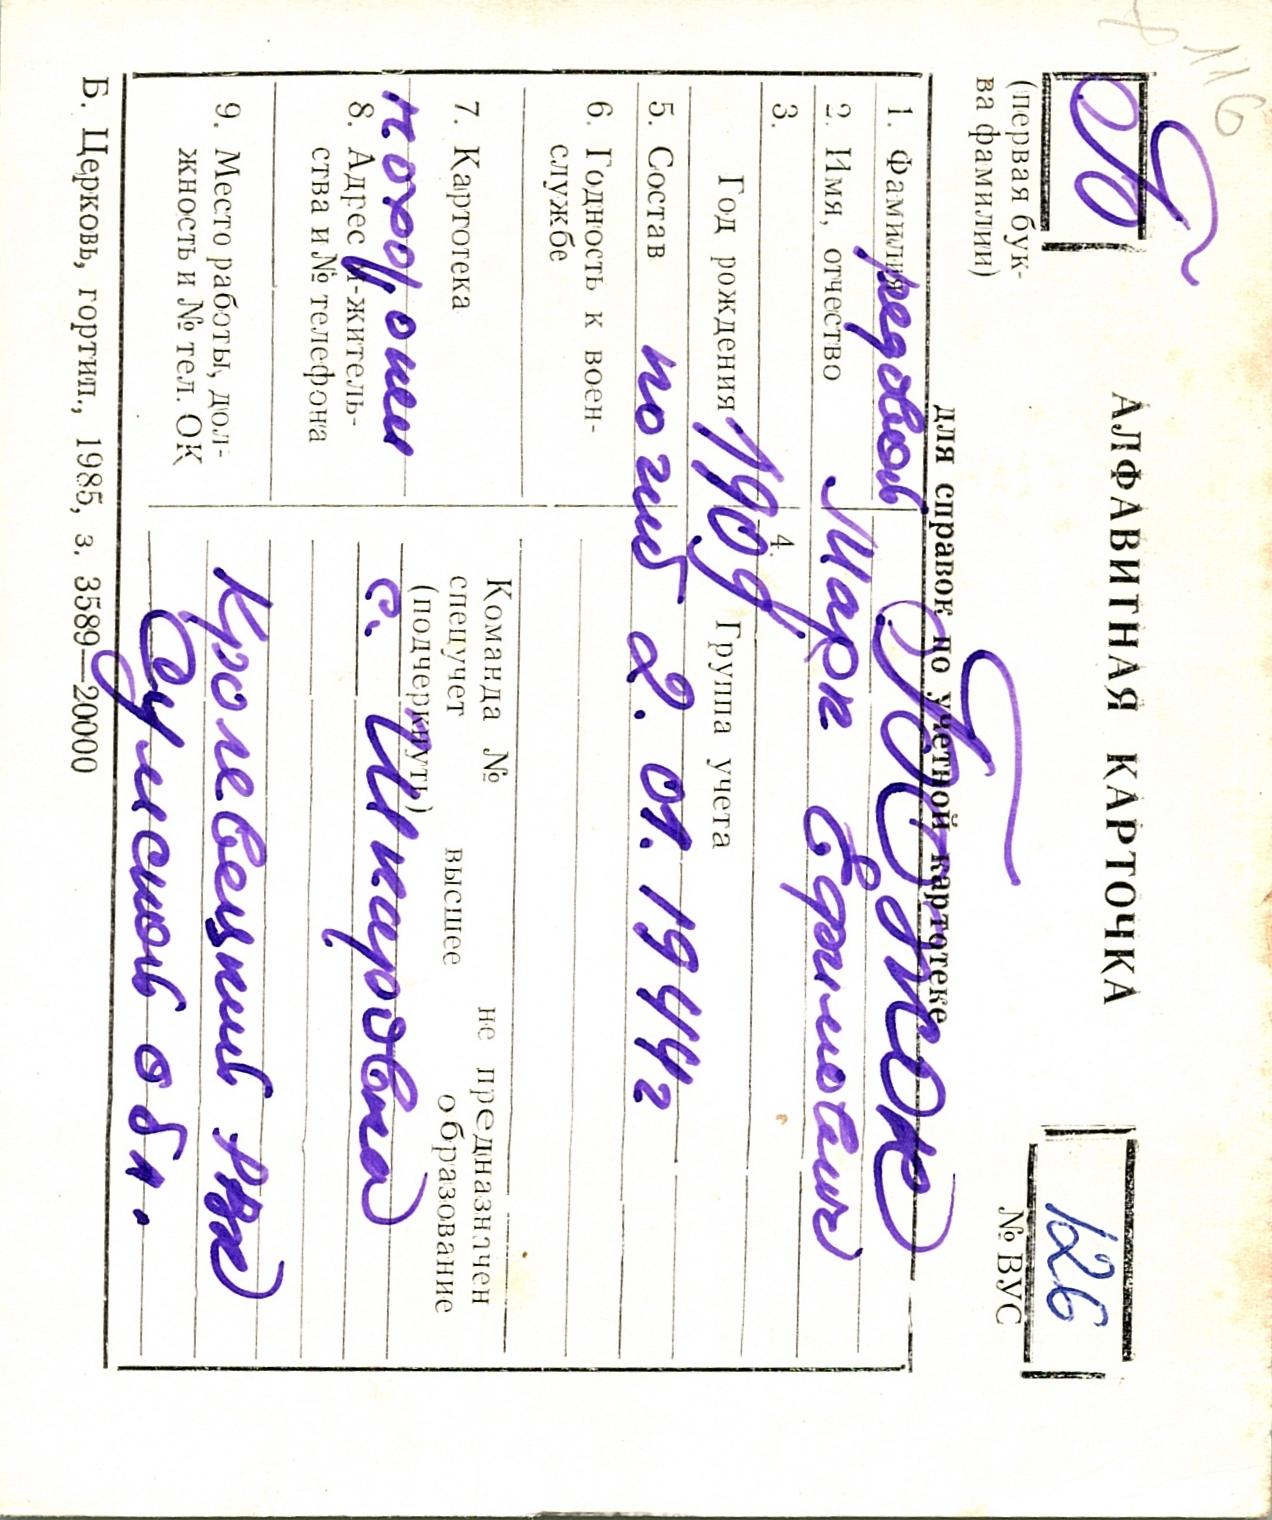 116
126
(первая бук-
ва фамилии)
АЛФАВИТНАЯ КАРТОЧКА
для справок по учетной картотеке
№ ВУС
1. Фамилия
редовой
2. Имя, отчество Марк Ефимович
3. 4.
Год рождения 1909 Группа учета
5. Состав погиб 2. 01. 1944г
6. Годность к воен-
службе
7. Картотека
Команда № не предназначен
спецучет высшее образование
(подчеркнуть)
похоронен с. Шкаровка
8. Адрес житель-
ства и № телефона
9. Место работы, дол-
жность и № тел. ОК
Кролевецкий РВК
Сумской обл.
Б. Церковь, гортип., 1985, з. 3589—20000